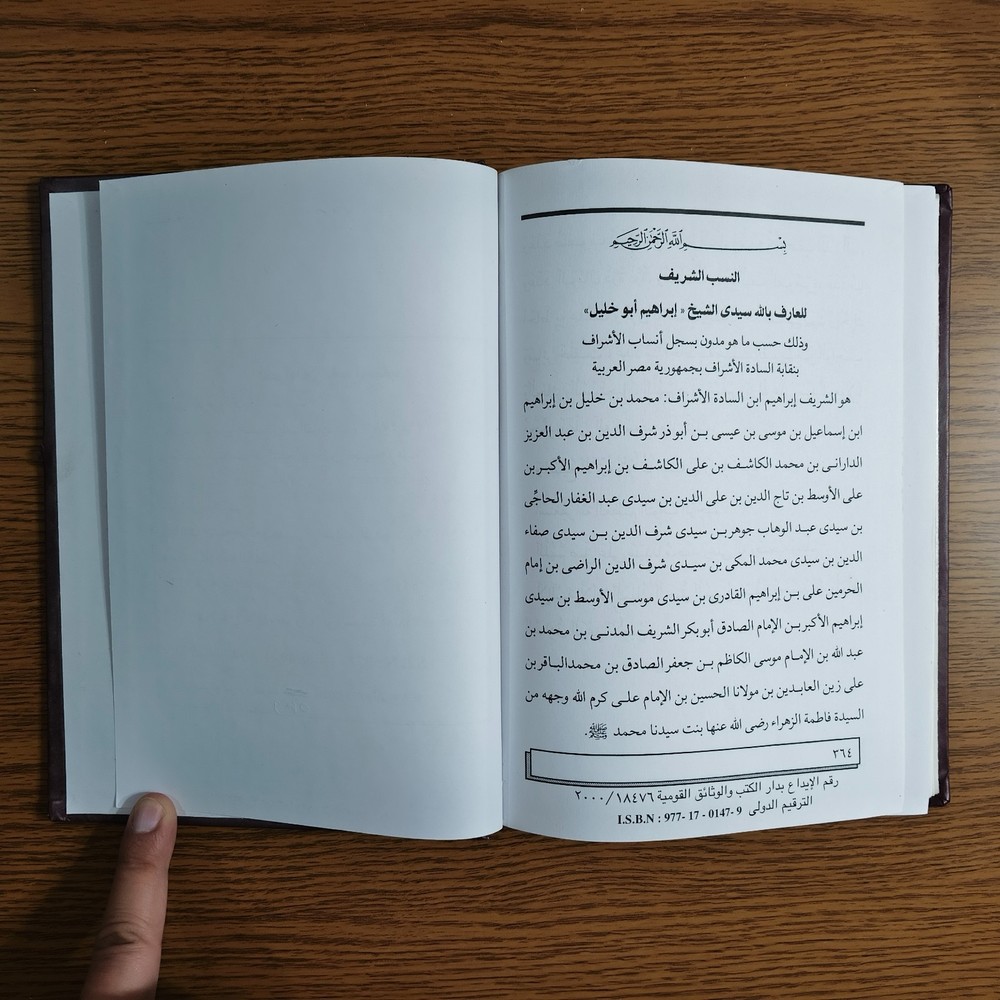 بسم الله الرحمن الرحيم
النسب الشريف
للعارف بالله سيدى الشيخ « إبراهيم أبو خليل»
وذلك حسب ما هو مدون بسجل أنساب الأشراف
بنقابة السادة الأشراف بجمهورية مصر العربية
هو الشريف إبراهيم ابن السادة الأشراف: محمد بن خليل بن إبراهيم
ابن إسماعيل بن موسى بن عيسى بن أبو ذر شرف الدين بن عبد العزيز
الدارانى بن محمد الكاشف بن على الكاشف بن إبراهيم الأكبر بن
على الأوسط بن تاج الدين بن على الدين بن سيدى عبد الغفار الحاجِّى
بن سيدى عبد الوهاب جوهر بن سيدى شرف الدين بن سيدى صفاء
الدين بن سيدى محمد المكى بن سيدى شرف الدين الراضى بن إمام
الحرمين على بن إبراهيم القادرى بن سيدى موسى الأوسط بن سيدى
إبراهيم الأكبر بن الإمام الصادق أبو بكر الشريف المدنى بن محمد بن
عبد الله بن الإمام موسى الكاظم بن جعفر الصادق بن محمد الباقر بن
على زين العابدين بن مولانا الحسين بن الإمام على كرم الله وجهه من
السيدة فاطمة الزهراء رضى الله عنها بنت سيدنا محمد ﷺ.
٣٦٤
رقم الإيداع بدار الكتب والوثائق القومية ١٨٤٧٦/ ٢٠٠٠
الترقيم الدولى I.S.B.N : 977- 17 - 0147- 9